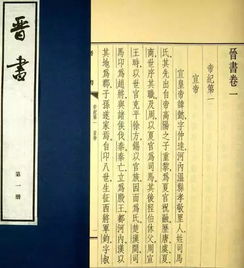 晉書
第一册
晉書卷一
帝紀第一
宣帝
宣皇帝諱懿字仲達河內溫縣孝敬里人姓司馬
氏其先出自帝高陽之子重黎爲夏官祝融歷唐虞夏
商世序其職及周以夏官爲司馬其後程伯休父周宣
王時以世官克平徐方錫以官族因而爲氏楚漢間司
馬卬爲趙將與諸侯伐秦秦亡立爲殷王都河內漢以
其地爲郡子孫遂家焉自卬八世生征西將軍鈞字叔